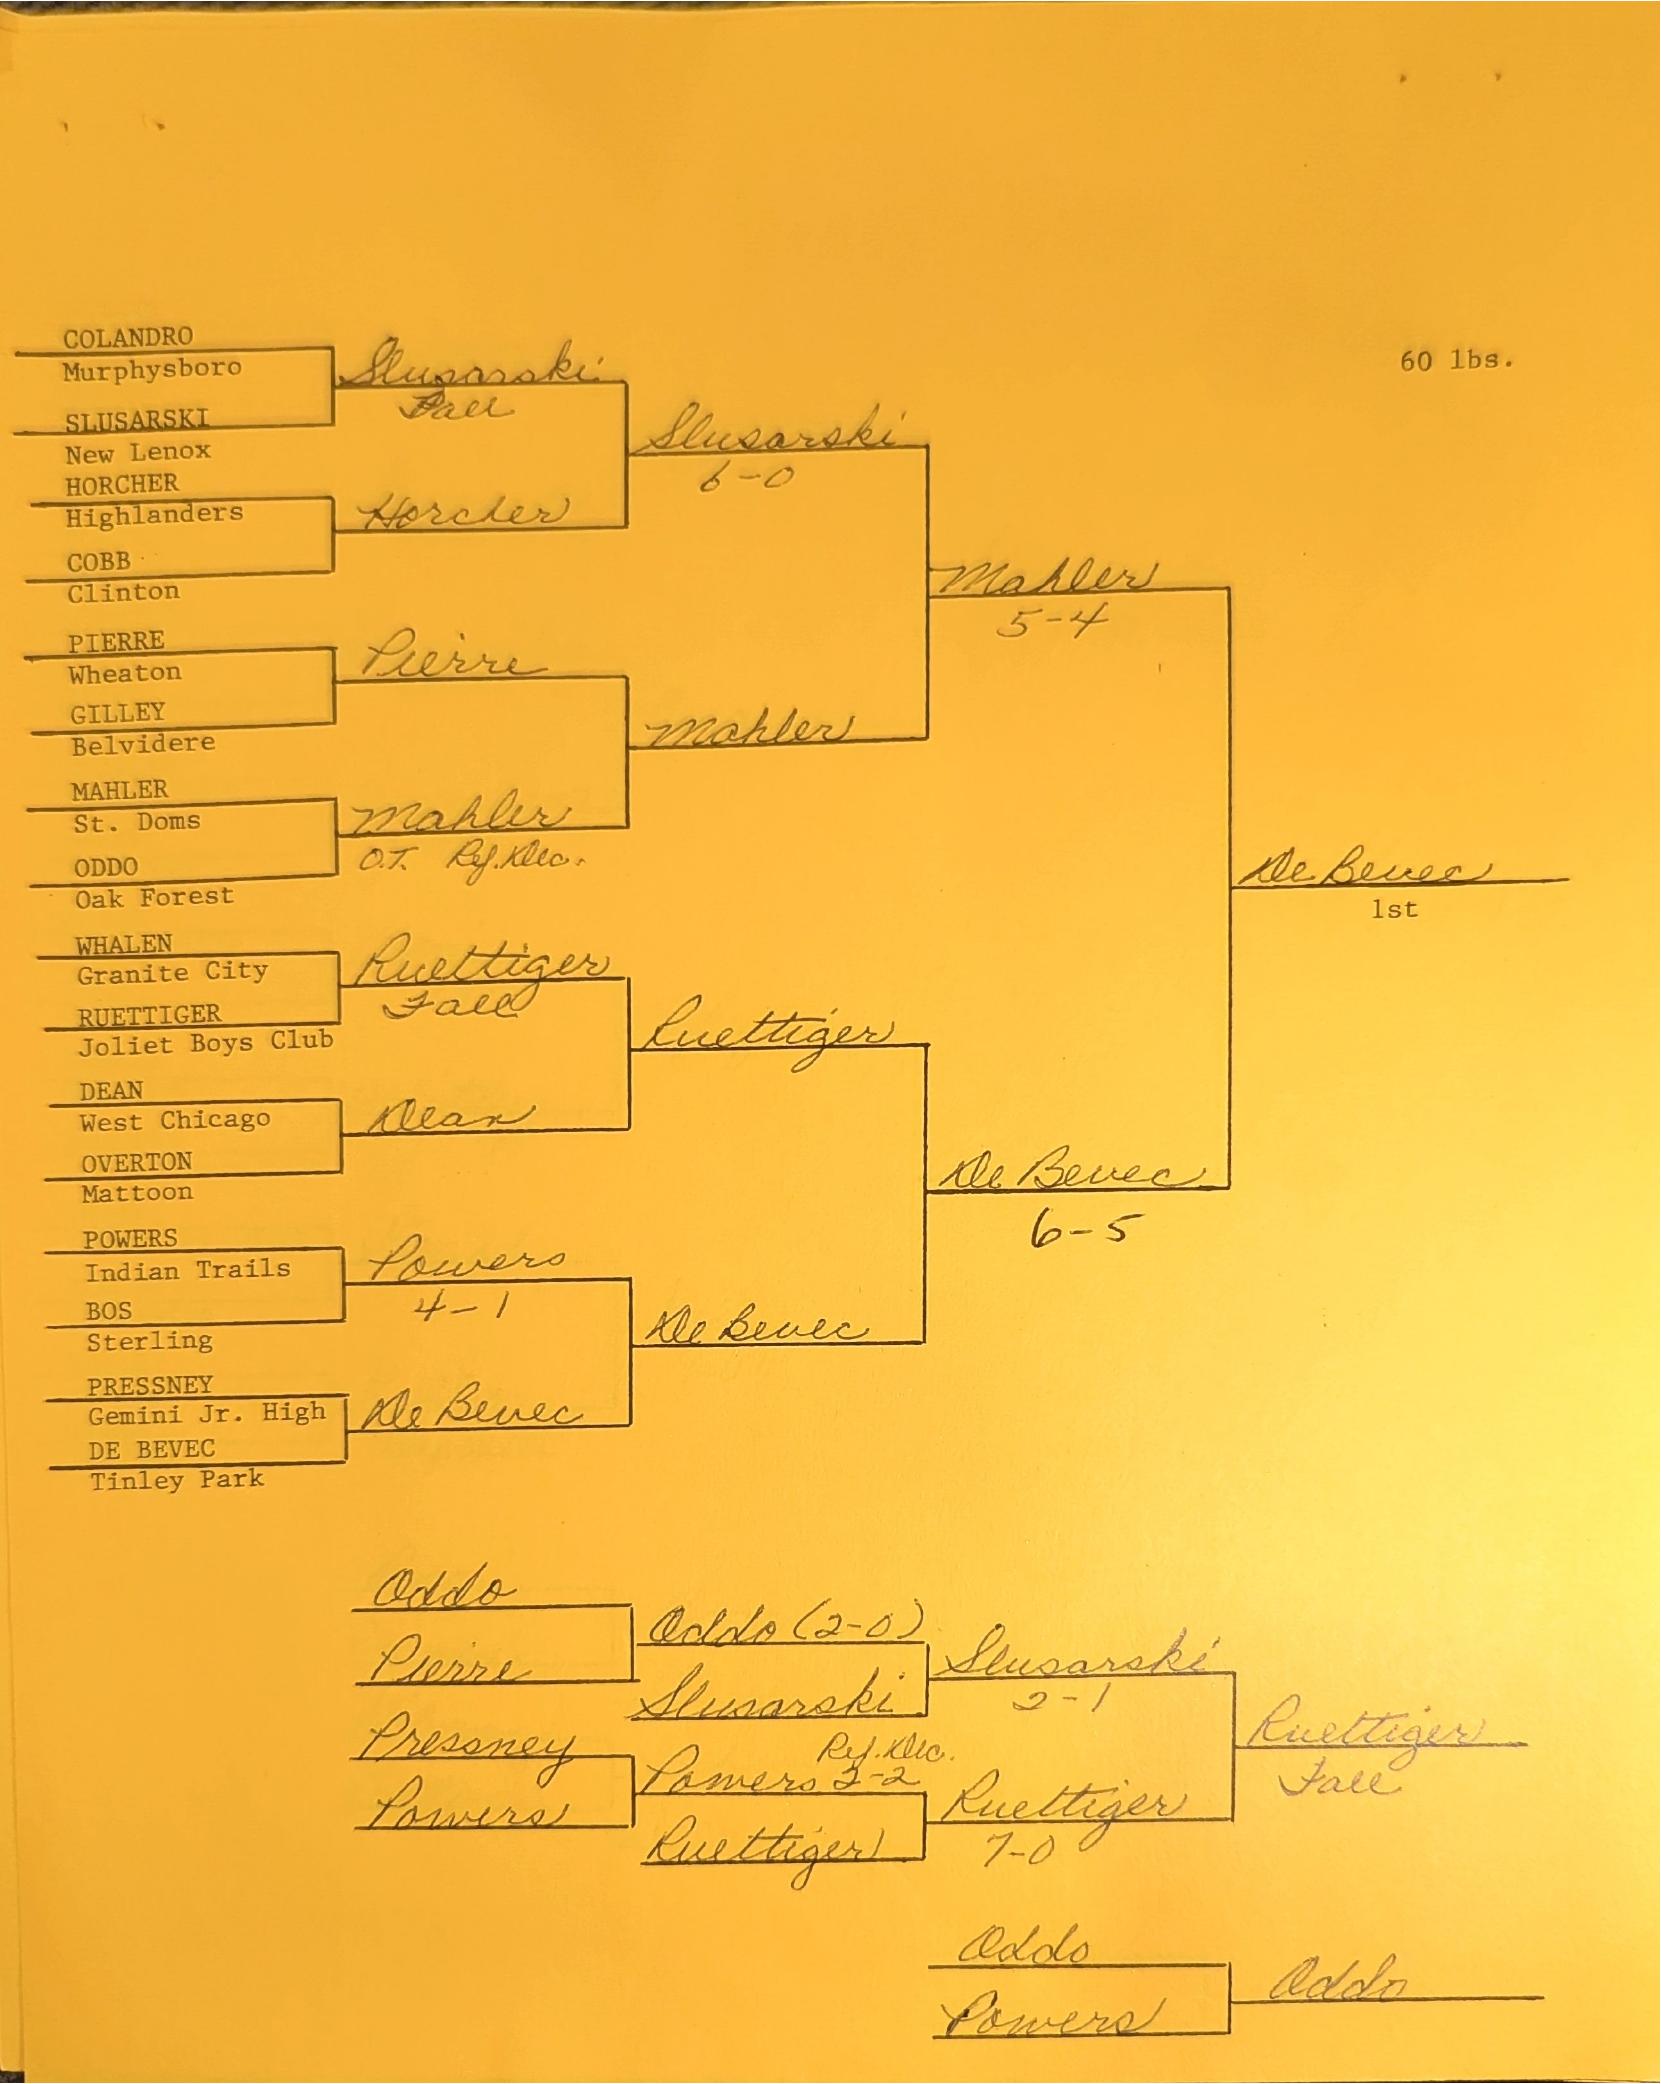 60 lbs.
COLANDRO
Murphysboro
SLUSARSKI
New Lenox
HORCHER
Highlanders
COBB
Clinton
PIERRE
Wheaton
GILLEY
Belvidere
MAHLER
St. Doms
ODDO
Oak Forest
WHALEN
Granite City
RUETTIGER
Joliet Boys Club
DEAN
West Chicago
OVERTON
Mattoon
POWERS
Indian Trails
BOS
Sterling
PRESSNEY
Gemini Jr. High
DE BEVEC
Tinley Park
Slusarski
Fall
Horcher
Pierre
Mahler
O.T. Ref. Dec.
Ruettiger
Fall
Dean
Powers
4-1
De Bevec
Slusarski
6-0
Mahler
Ruettiger
De Bevec
Mahler
5-4
De Bevec
6-5
De Bevec
1st
Oddo
Pierre
Pressney
Powers
Oddo (2-0)
Slusarski
Ref. Dec.
Powers 2-2
Ruettiger
Slusarski
2-1
Ruettiger
7-0
Ruettiger
Fall
Oddo
Powers
Oddo